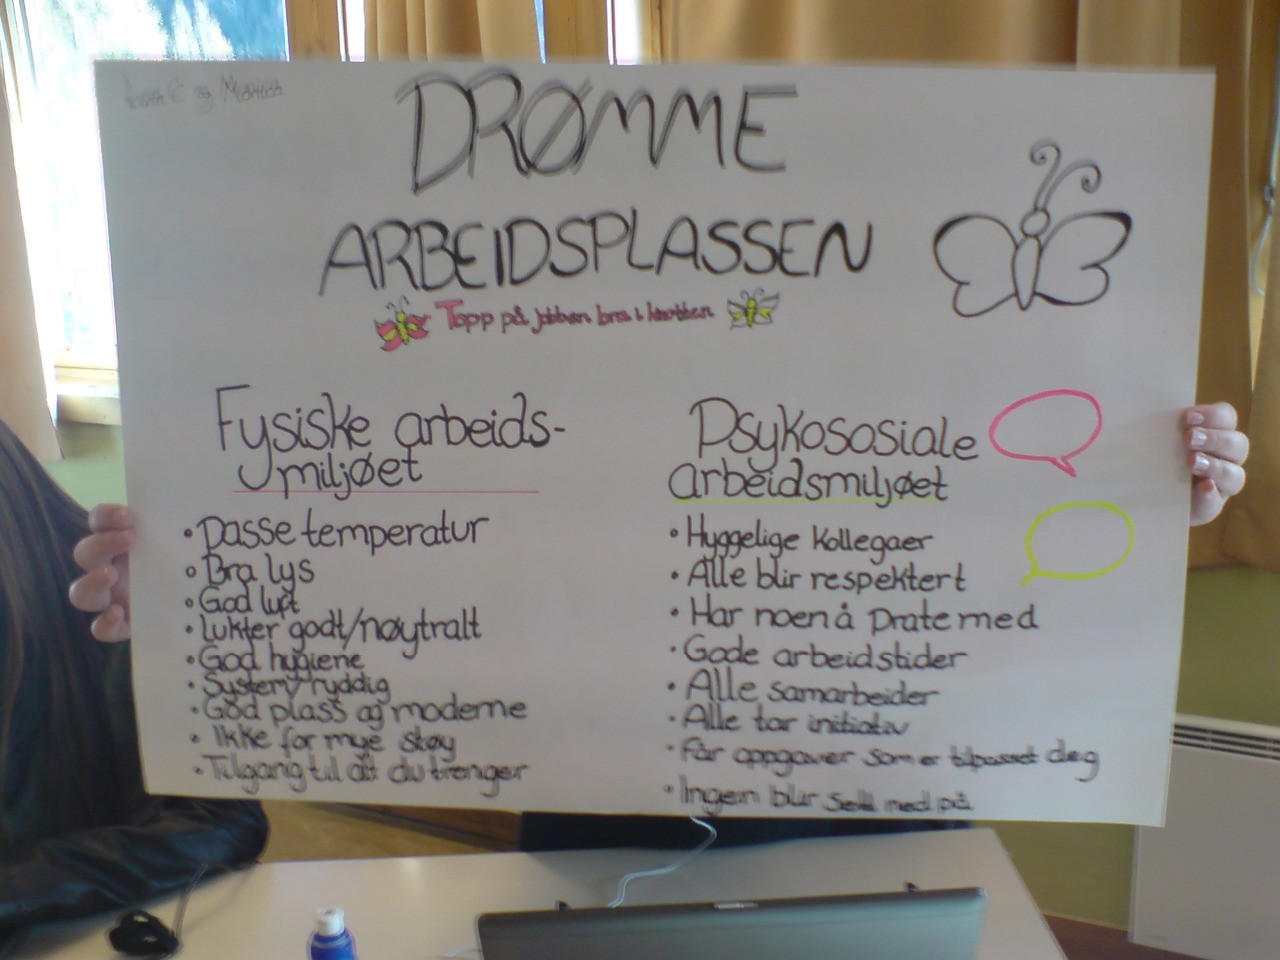 og Monica
DRØMME
ARBEIDSPLASSEN
Topp på jobben bra i knotten
Fysiske arbeids-
miljøet
• Passe temperatur
• Bra lys
• God luft
• Lukter godt/nøytralt
• God hygiene
• System/ryddig
• God plass og moderne
• Ikke for mye støy
• Tilgang til alt du trenger
Psykososiale
arbeidsmiljøet
• Hyggelige kollegaer
• Alle blir respektert
• Har noen å prate med
• Gode arbeidstider
• Alle samarbeider
• Alle tar initiativ
• Får oppgaver som er tilpasset deg
• Ingen blir sett ned på